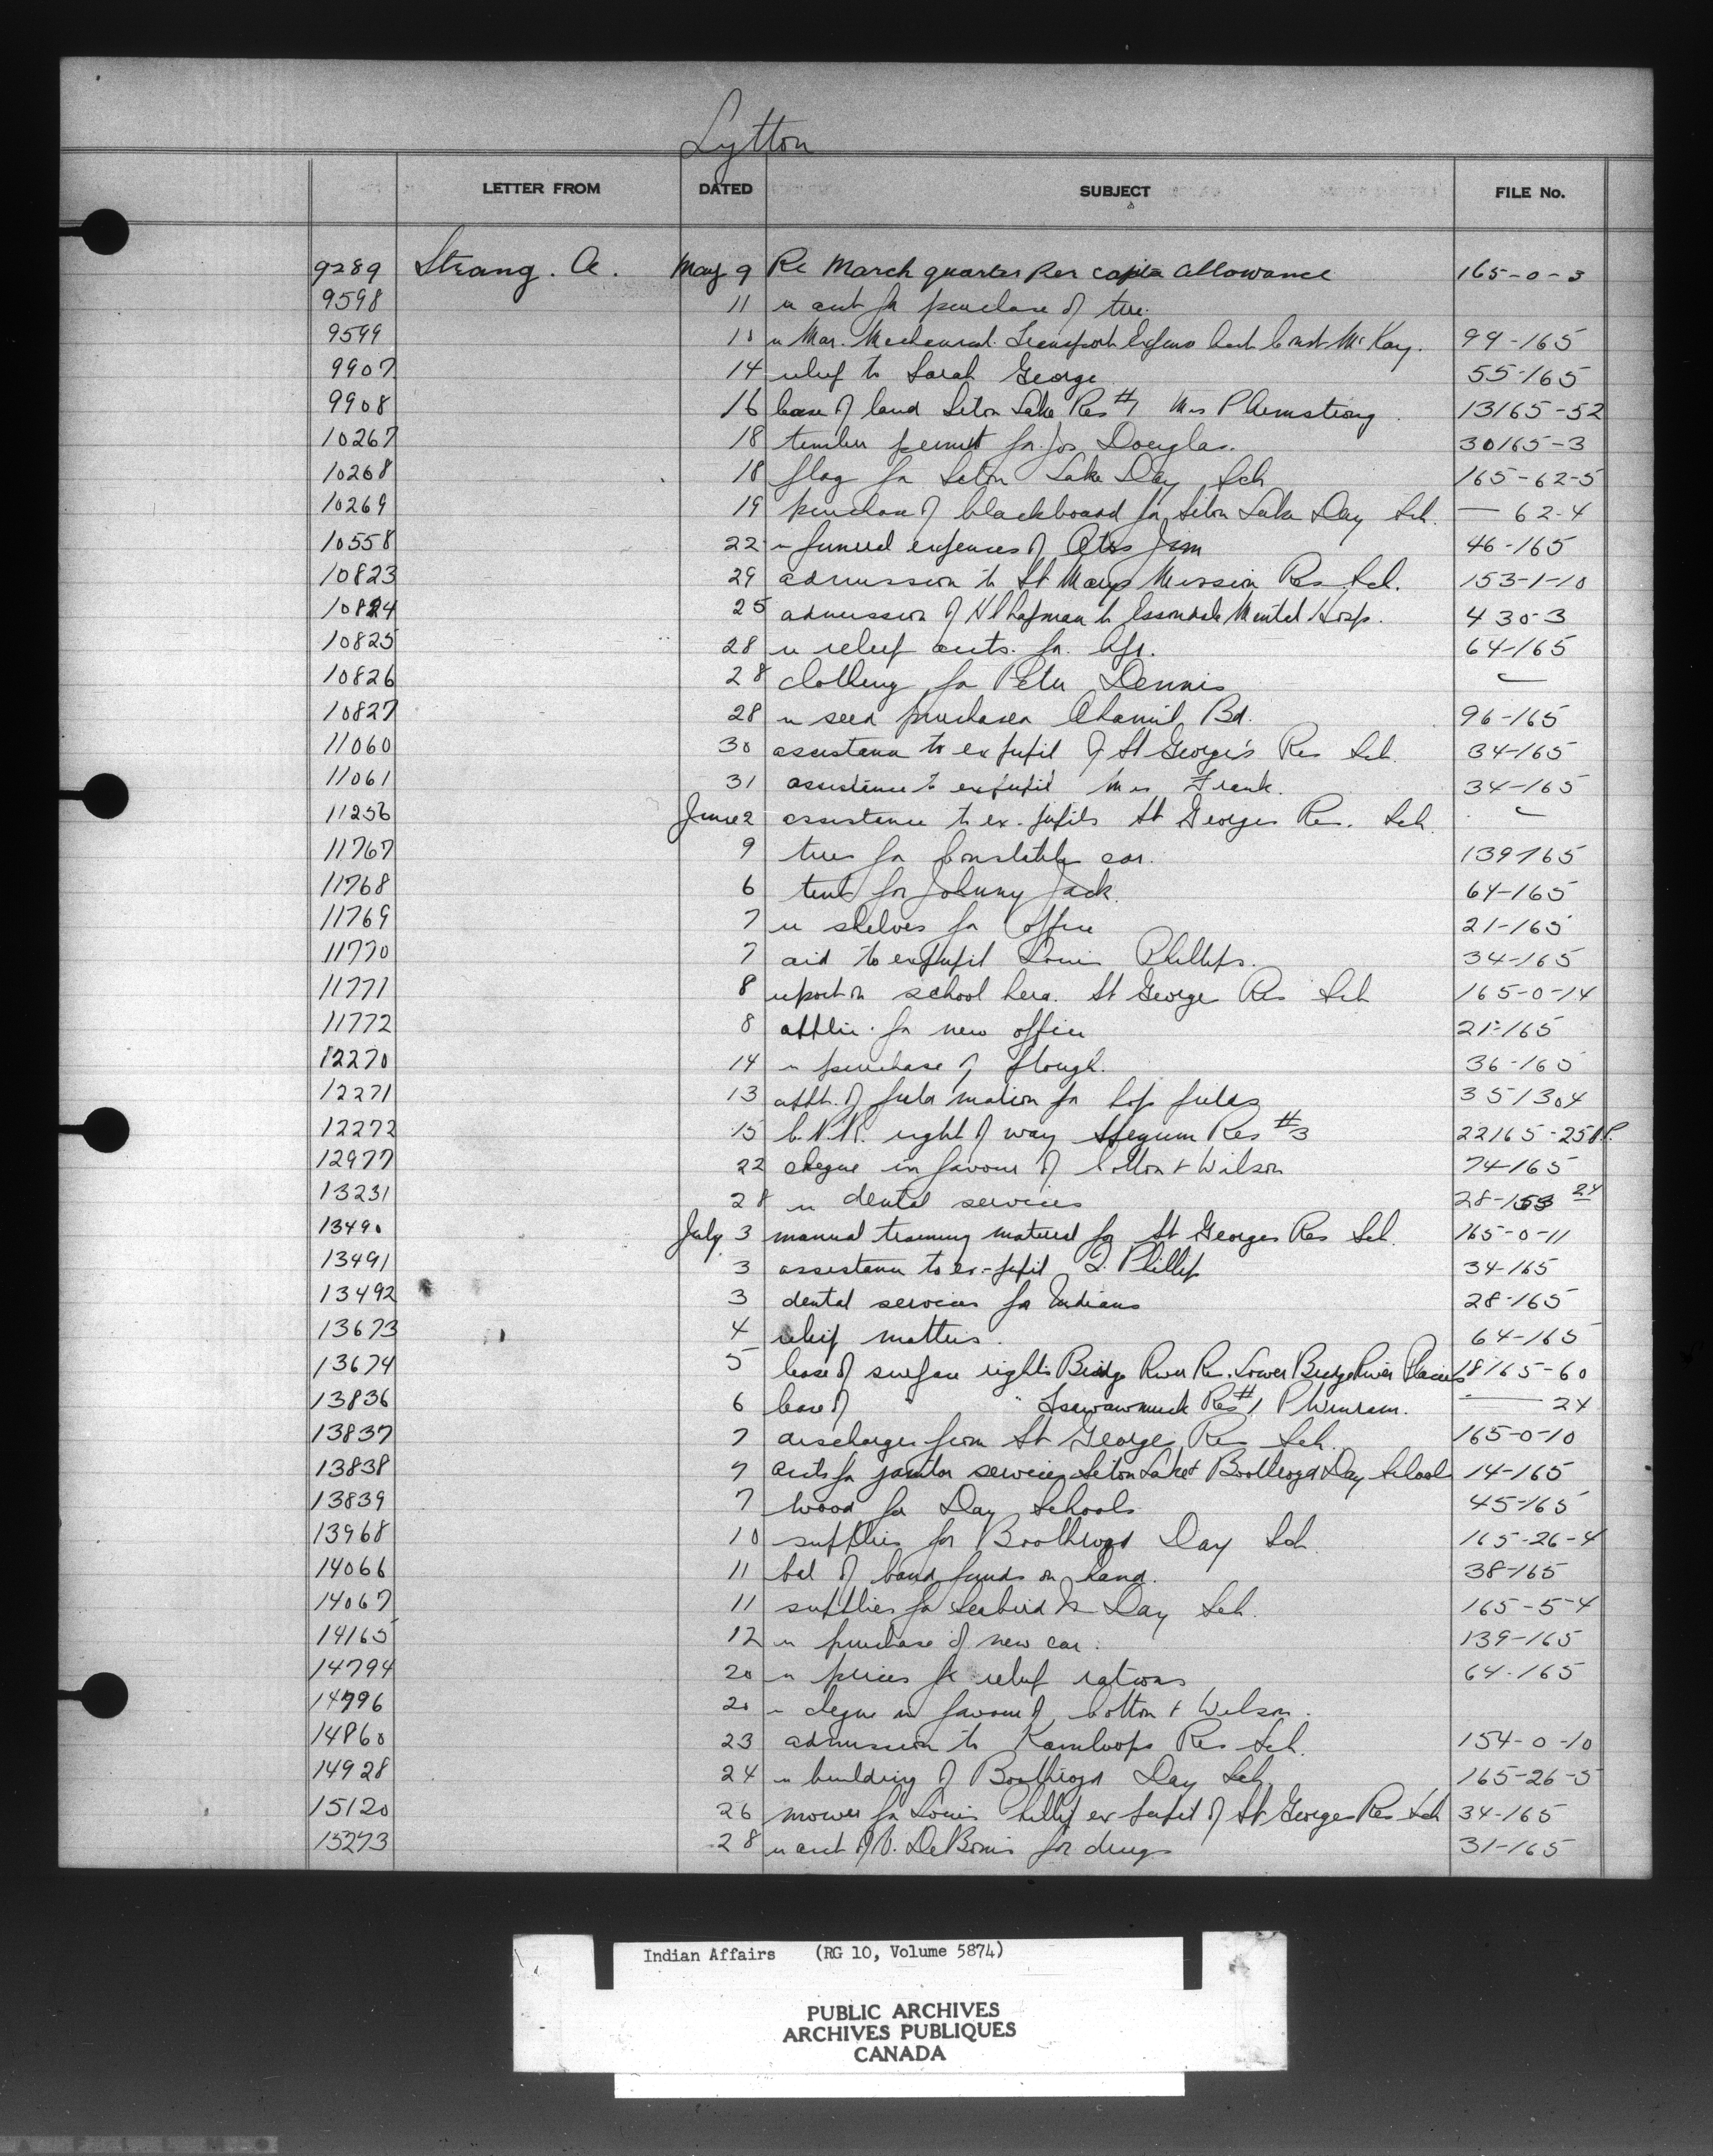 Lytton
LETTER FROM DATED SUBJECT FILE No.
9289 Strang. A. May 9 Re March quarter Per capita allowance 165-0-3
9598 11 re acct for purchase of tire.
9599 10 " Mar. Mechanical Transport Const McKay. 99-165
9907 14 relief to Sarah George 55-165
9908 16 lease of land Seton Lake Res #1 Mrs P Armstrong. 13165-52
10267 18 timber permit for Jos Douglas. 30165-3
10268 18 flag for Seton Lake Day Sch 165-62-5
10269 19 purchase of blackboard for Seton Lake Day Sch. — 62-4
10558 22 " funeral expenses of Jim 46-165
10823 29 admission to St Marys Mission Res Sch. 153-1-10
10824 25 admission of H Chapman to Essondale Mental Hosp. 430-3
10825 28 re relief accts. for Apr. 64-165
10826 28 clothing for Peter Dennis
10827 28 re seed purchased Bd. 96-165
11060 30 assistance to ex pupil of St George's Res Sch. 34-165
11061 31 assistance to expupil Mrs Frank. 34-165
11256 June 2 assistance to ex-pupils St Georges Res. Sch.
11767 9 tires for Constable car. 139-165
11768 6 tent for Johnny Jack. 64-165
11769 7 re shelves for office 21-165
11770 7 aid to expupil Louis Phillips. 34-165
11771 8 report on school herd. St George Res Sch 165-0-14
11772 8 applic. for new office 21-165
12270 14 " purchase of plough. 36-165
12271 13 appt. of field matron for hop fields 35/304
12272 15 C.N.R. right of way Res #3 22165-258P.
12977 22 cheque in favour of Cotton & Wilson 74-165
13231 28 re dental services 28-153 24
13490 July 3 manual training material for St Georges Res Sch. 165-0-11
13491 3 assistance to ex-pupil L. Phillip 34-165
13492 3 dental services for Indians 28-165
13673 4 relief matters. 64-165
13674 5 lease of surface rights Bridge River Res. Lower Bridge River Placers 18165-60
13836 6 lease of " " Tsawawmuck Res #1 P Winram. — 24
13837 7 discharges from St George Res Sch. 165-0-10
13838 7 accts for janitor services Seton Lake & Boothroyd Day Schools 14-165
13839 7 wood for Day Schools 45-165
13968 10 supplies for Boothroyd Day Sch. 165-26-4
14066 11 bal of band funds on hand. 38-165
14067 11 supplies for Seabird Is Day Sch. 165-5-4
14165 12 re purchase of new car. 139-165
14794 20 " prices for relief rations 64-165
14796 20 " cheque in favour of Cotton & Wilson.
14860 23 admission to Kamloops Res Sch. 154-0-10
14928 24 re building of Boothroyd Day Sch. 165-26-5
15120 26 mower for Louis Phillip ex pupil of St Georges Res Sch 34-165
15273 28 re acct of DeBonis for drugs 31-165
Indian Affairs (RG 10, Volume 5874)
PUBLIC ARCHIVES
ARCHIVES PUBLIQUES
CANADA